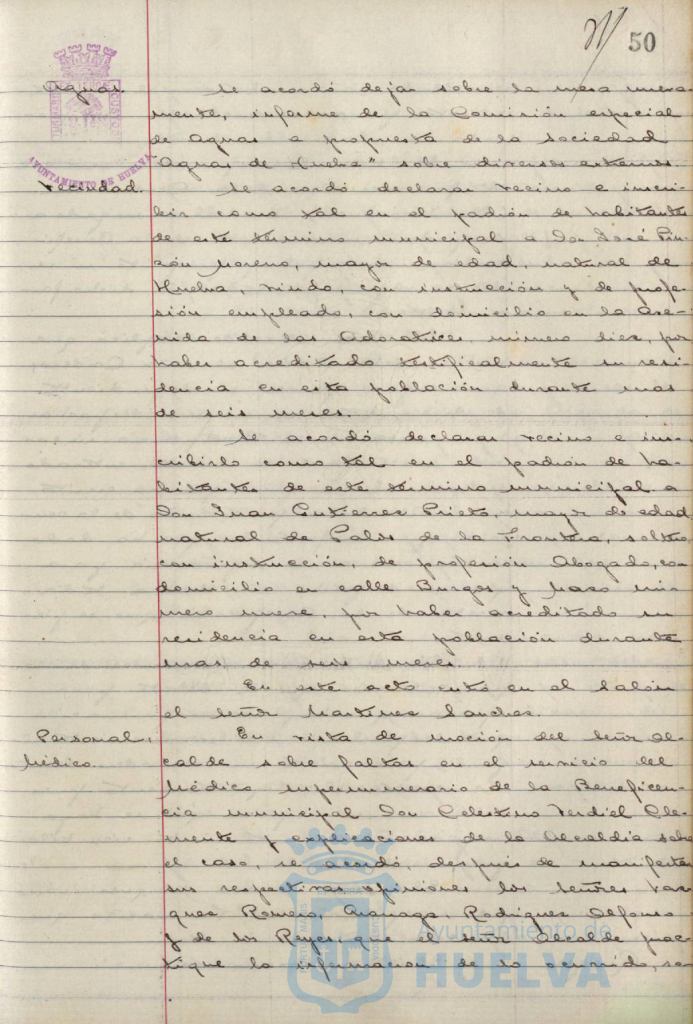 50
Aguas.
Se acordó dejar sobre la mesa nueva-
mente, informe de la Comisión especial
de Aguas a propuesta de la Sociedad
"Aguas de Huelva" sobre diversos extremos.
AYUNTAMIENTO DE HUELVA
Vecindad.
Se acordó declarar vecino e inscri-
bir como tal en el padrón de habitantes
de este término municipal a Don José Pin-
zón Moreno, mayor de edad, natural de
Huelva, viudo, con instrucción y de profe-
sión empleado, con domicilio en la Ave-
nida de las Adoratrices, número diez, por
haber acreditado testificalmente su resi-
dencia en esta población durante mas
de seis meses.
Se acordó declarar vecino e ins-
cribirlo como tal en el padrón de ha-
bitantes de este término municipal a
Don Juan Gutierrez Prieto, mayor de edad
natural de Palos de la Frontera, soltero
con instrucción, de profesión Abogado, con
domicilio en calle Burgos y Mazo nú-
mero nueve, por haber acreditado su
residencia en esta población durante
mas de seis meses.
En este acto entró en el Salón
el Señor Martinez Sanchez.
Personal,
Médico.
En vista de moción del Señor Al-
calde sobre faltas en el servicio del
Médico supernumerario de la Beneficen-
cia municipal Don Celestino Verdiel Cle-
mente y explicaciones de la Alcaldía sobre
el caso, se acordó, después de manifestar
sus respectivas opiniones los Señores Vaz-
quez Romero, Rodriguez Alfonso
y de los Reyes, que el Señor Alcalde prac-
tique la información de lo ocurrido, se-
Ayuntamiento de
HUELVA